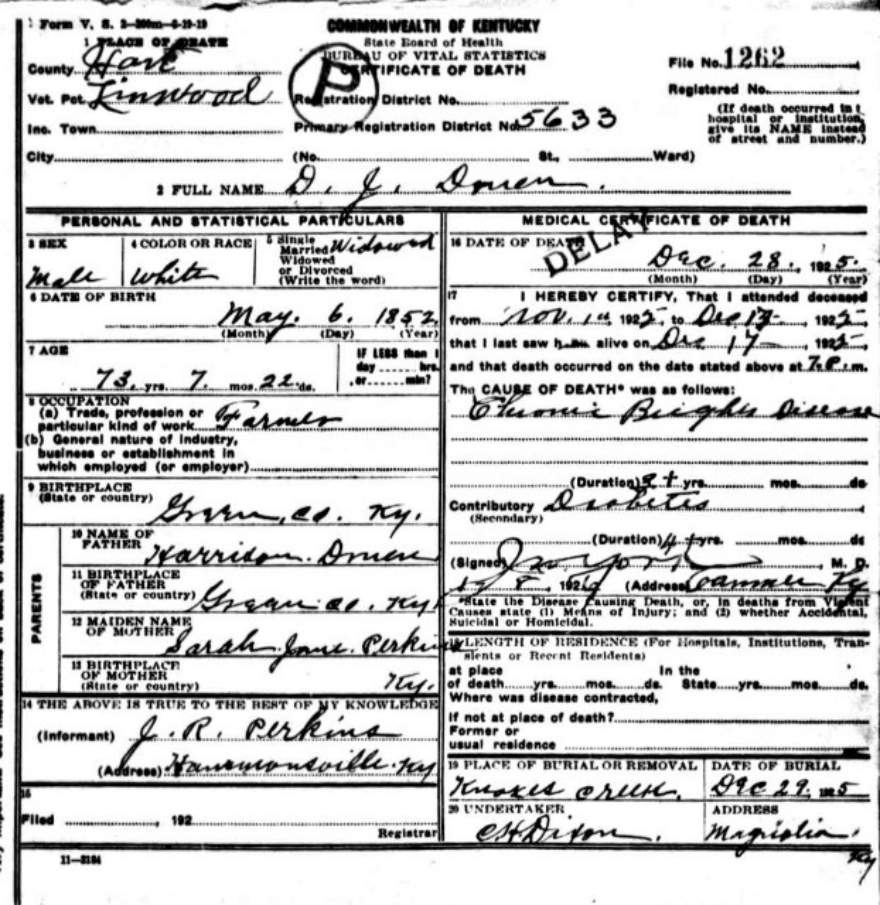 Form V. S. 2—200m—6-19-19
COMMONWEALTH OF KENTUCKY
State Board of Health
BUREAU OF VITAL STATISTICS
CERTIFICATE OF DEATH
P
1 PLACE OF DEATH
County Hart
Vot. Pct. Linwood
Inc. Town
City
Registration District No.
Primary Registration District No. 5633
(No. St., Ward)
File No. 1262
Registered No.
(If death occurred in a
hospital or institution,
give its NAME instead
of street and number.)
2 FULL NAME D. J.
PERSONAL AND STATISTICAL PARTICULARS
3 SEX
Male
4 COLOR OR RACE
White
5 Single
Married
Widowed
or Divorced
(Write the word)
Widowed
6 DATE OF BIRTH
May. 6. 1852
(Month) (Day) (Year)
7 AGE
73. yrs. 7. mos. 22 ds.
IF LESS than 1
day ...... hrs.
or ...... min?
8 OCCUPATION
(a) Trade, profession or
particular kind of work Farmer
(b) General nature of industry,
business or establishment in
which employed (or employer)
9 BIRTHPLACE
(State or country)
Green, co. Ky.
PARENTS
10 NAME OF
FATHER
Harrison
11 BIRTHPLACE
OF FATHER
(State or country)
Green co. Ky
12 MAIDEN NAME
OF MOTHER
Sarah Jane Perkins
13 BIRTHPLACE
OF MOTHER
(State or country)
Ky.
14 THE ABOVE IS TRUE TO THE BEST OF MY KNOWLEDGE
(Informant) J. R. Perkins
(Address) Ky
15
Filed , 192
Registrar
11—3184
MEDICAL CERTIFICATE OF DEATH
DELAY
16 DATE OF DEATH
Dec. 28, 1925.
(Month) (Day) (Year)
17 I HEREBY CERTIFY, That I attended deceased
from Nov. 1st, 1925, to Dec 17, 1925
that I last saw him alive on Dec 17, 1925
and that death occurred on the date stated above at 7.P.m.
The CAUSE OF DEATH* was as follows:
Chronic Brights Disease
(Duration) yrs. mos. ds.
Contributory Diabetes
(Secondary)
(Duration) 4 + yrs. mos. ds.
(Signed) M. D.
(Address) Canmer Ky
*State the Disease Causing Death, or, in deaths from Violent
Causes state (1) Means of Injury; and (2) whether Accidental,
Suicidal or Homicidal.
18 LENGTH OF RESIDENCE (For Hospitals, Institutions, Tran-
sients or Recent Residents)
at place In the
of death yrs. mos. ds. State yrs. mos. ds.
Where was disease contracted,
If not at place of death?
Former or
usual residence
19 PLACE OF BURIAL OR REMOVAL
Knoxes Creek.
DATE OF BURIAL
Dec 29. 1925
20 UNDERTAKER
CH Dixon.
ADDRESS
Magnolia.
Ky